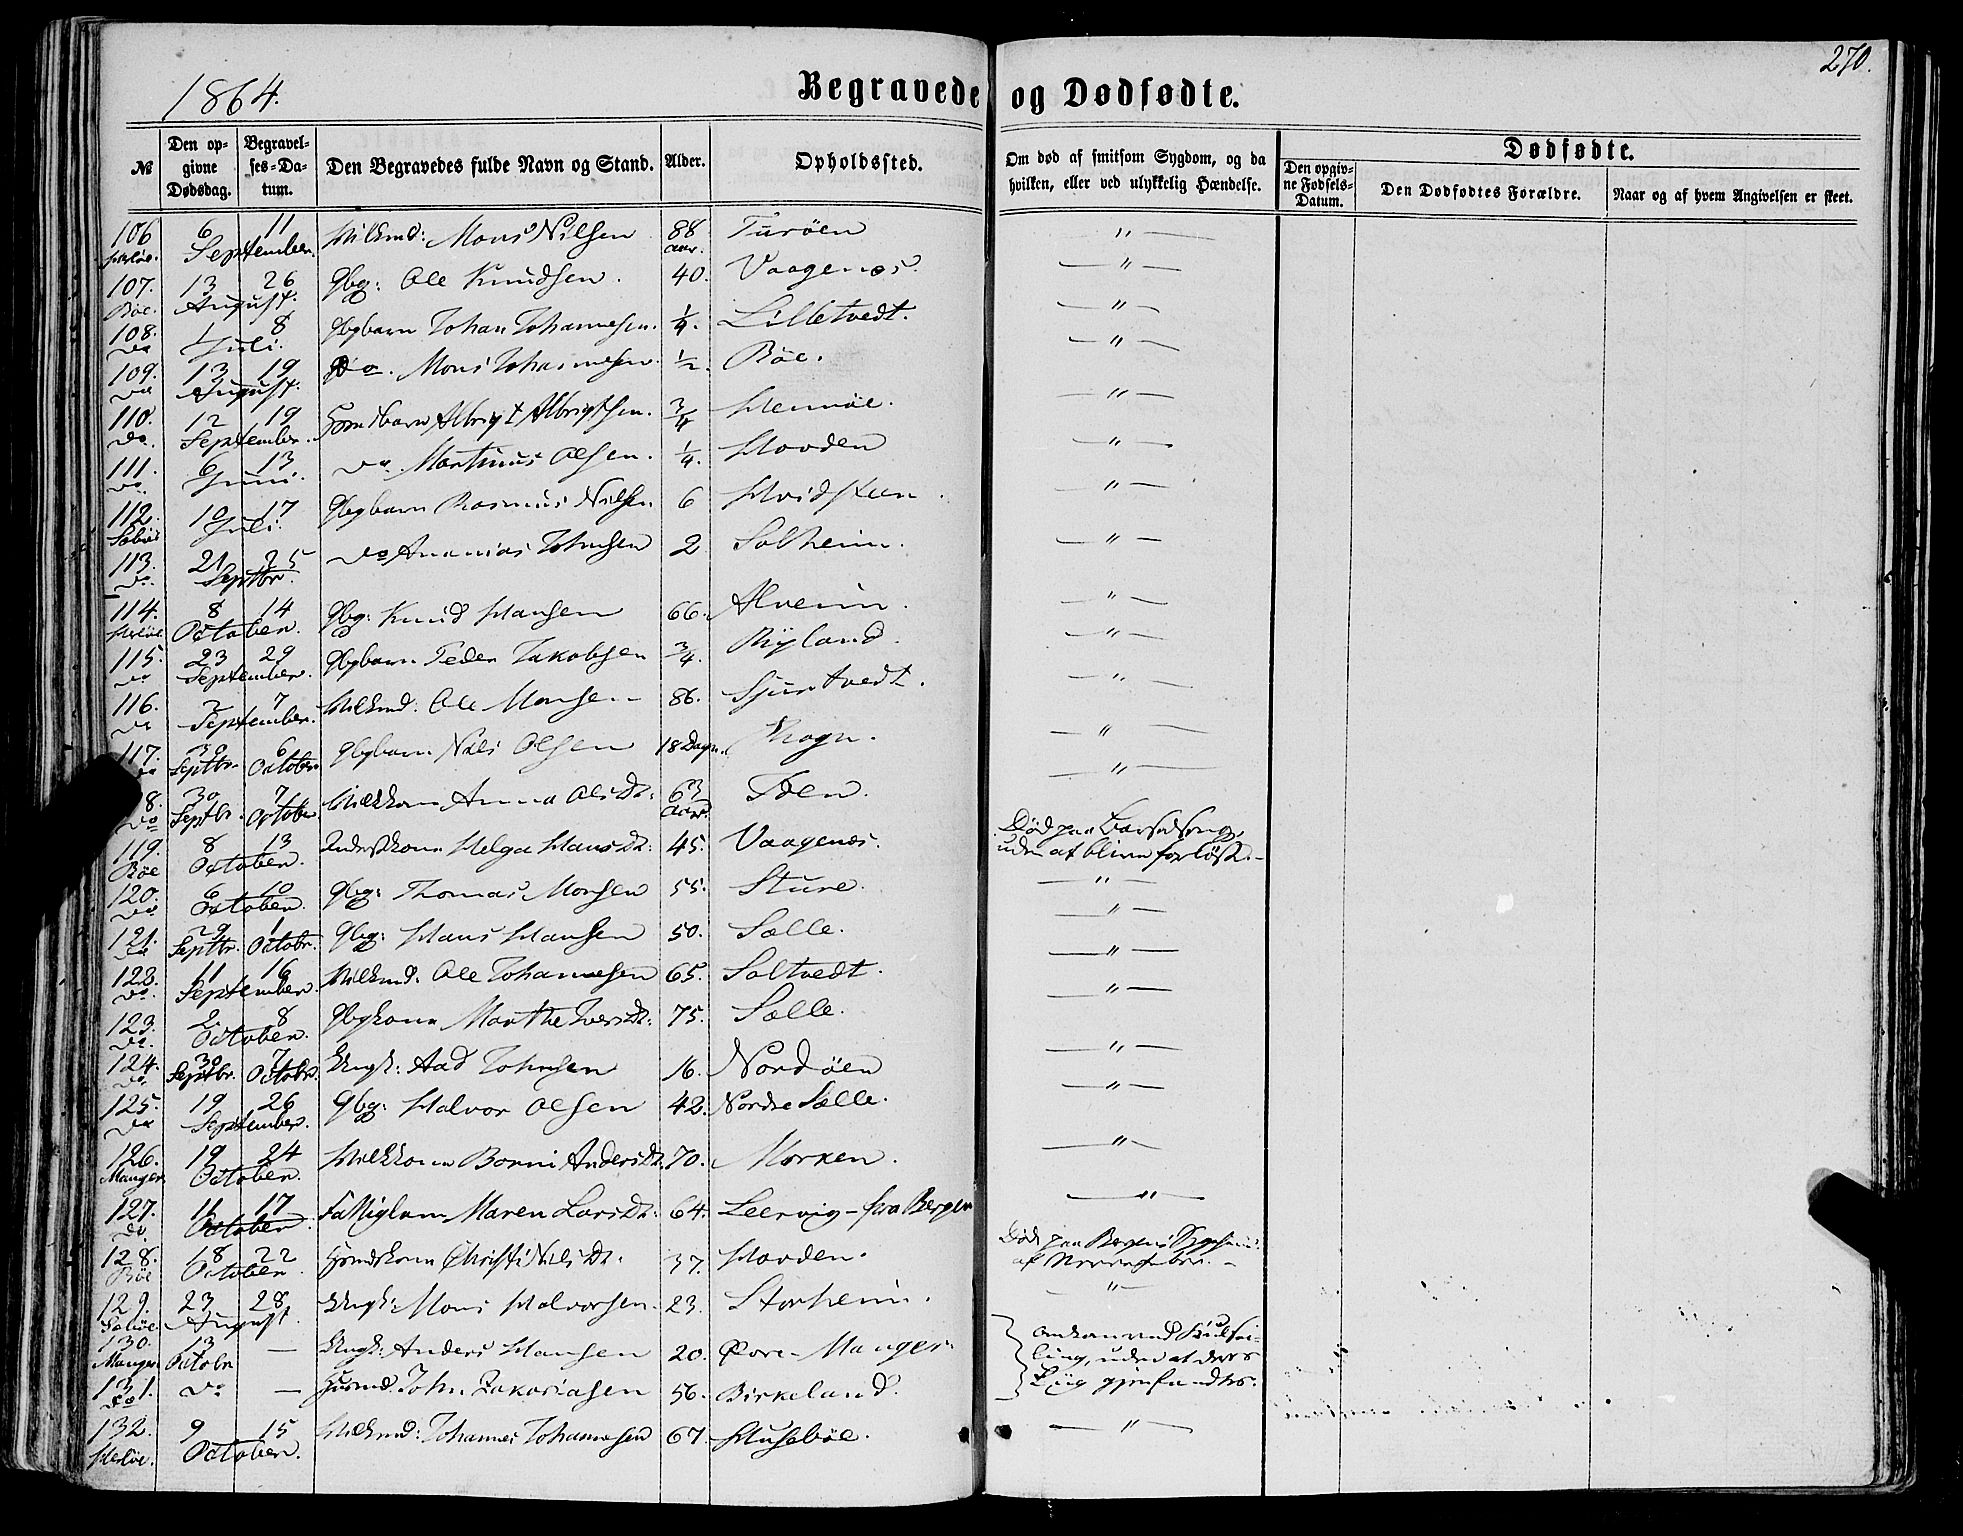 1864.
Begravede og Dødfødte.
270.
№
Den opgivne Dødsdag.
Begravelses-Datum.
Den Begravedes fulde Navn og Stand.
Alder.
Opholdssted.
Om død af smitsom Sygdom, og da hvilken, eller ved ulykkelig Hændelse.
Dødfødte.
Den opgivne Fødsels-Datum.
Den Dødfødtes Forældre.
Naar og af hvem Angivelsen er skeet.
106 Herløe. 6 11 September. Vilkmd: Mons Nilsen 88 Aar. Turöen — " —
107. Böe. 13 26 August. Gbg: Ole Knudsen. 40. Vaagenes. — " —
108. Do 1 8 Juli. Gbgbarn Johan Johannesen. ¼. Lilletvedt. — " —
109. Do 13 19 August. Do. Mons Johannesen. ½. Böe. — " —
110. Do. 12 19 September. Huusmdbarn Albrigt Albrigtsen. ¾ Hennöe. — " —
111. Do. 6 13 Juni. Do. Martinus Olsen. ¼. Hovden — " —
112. Sæböe 10 17 Juli. Gbgbarn Rasmus Nilsen 6 Hvidsteen. — " —
113. Do. 21 25 Septbr. Do Ananias Johnsen 2 Solheim. — " —
114. Herlöe 8 14 October. Gbg: Knud Hansen 66. Alveim. — " —
115. Do 23 29 September. Gbgbarn Peder Jakobsen ¾. Ryland. — " —
116. Do 2 7 September. Vilkmd: Ole Monsen 86. Sjurtvedt. — " —
117. Do 30 Septbr. 6 October Gbgbarn Nils Olsen 18 Dage. Krogn. — " —
8. Do 30 Septbr. 7 October. Vilkkone Anna Olsdt: 63 Aar. Toen. — " —
119. Böe 8 13 October. Huusmdkone Helga Hansdt: 45. Vaagenes. Död paa Barselseng,
uden at blive forlöst. —
120. Do. 6 10 October. Gbg: Thomas Monsen 55. Sture. — " —
121. Do 29 Septbr. 1 Octobr. Gbg: Hans Hansen 50. Sælle. — " —
122. Do. 11 16 September. Vilkmd: Ole Johannesen 65. Soltvedt. — " —
123. Do. 2 8 October. Gbgkone Marthe Iversdt: 75. Sælle. — " —
124. Do. 30 Septbr. 7 Octobr. Ungk: Aad Johnsen 16. Nordöen — " —
125. Do 19 26 September. Gbg: Halvor Olsen 42. Nordre Sælle. — " —
126. Manger 19 24 October. Vilkkone Borni Andersdt. 70. Morken. — " —
127. Do. 11 17 October. Fattiglem Maren Larsdt: 64. Leervig — fra Bergen — " —
128. Böe 18 22 October. Huusmdkone Christi Nilsdt. 37. Hovden. Död paa Bergens Sygehuus
af Nervefeber. —
129. Sæböe. 23 28 August. Ungk: Mons Halvorsen. 23. Storheim. — " —
130. Manger. 13 Octobr — Ungk: Anders Hansen 20. Övre-Manger. omkommet Seil
ling, uden at deres
131. Do Do — Huusmd. John Zakariasen 56. Birkeland. Liig gjenfandtes.
132. Herlöe. 9 15 October. Vilkmd: Johannes Johannesen 67. Huseböe. — " —